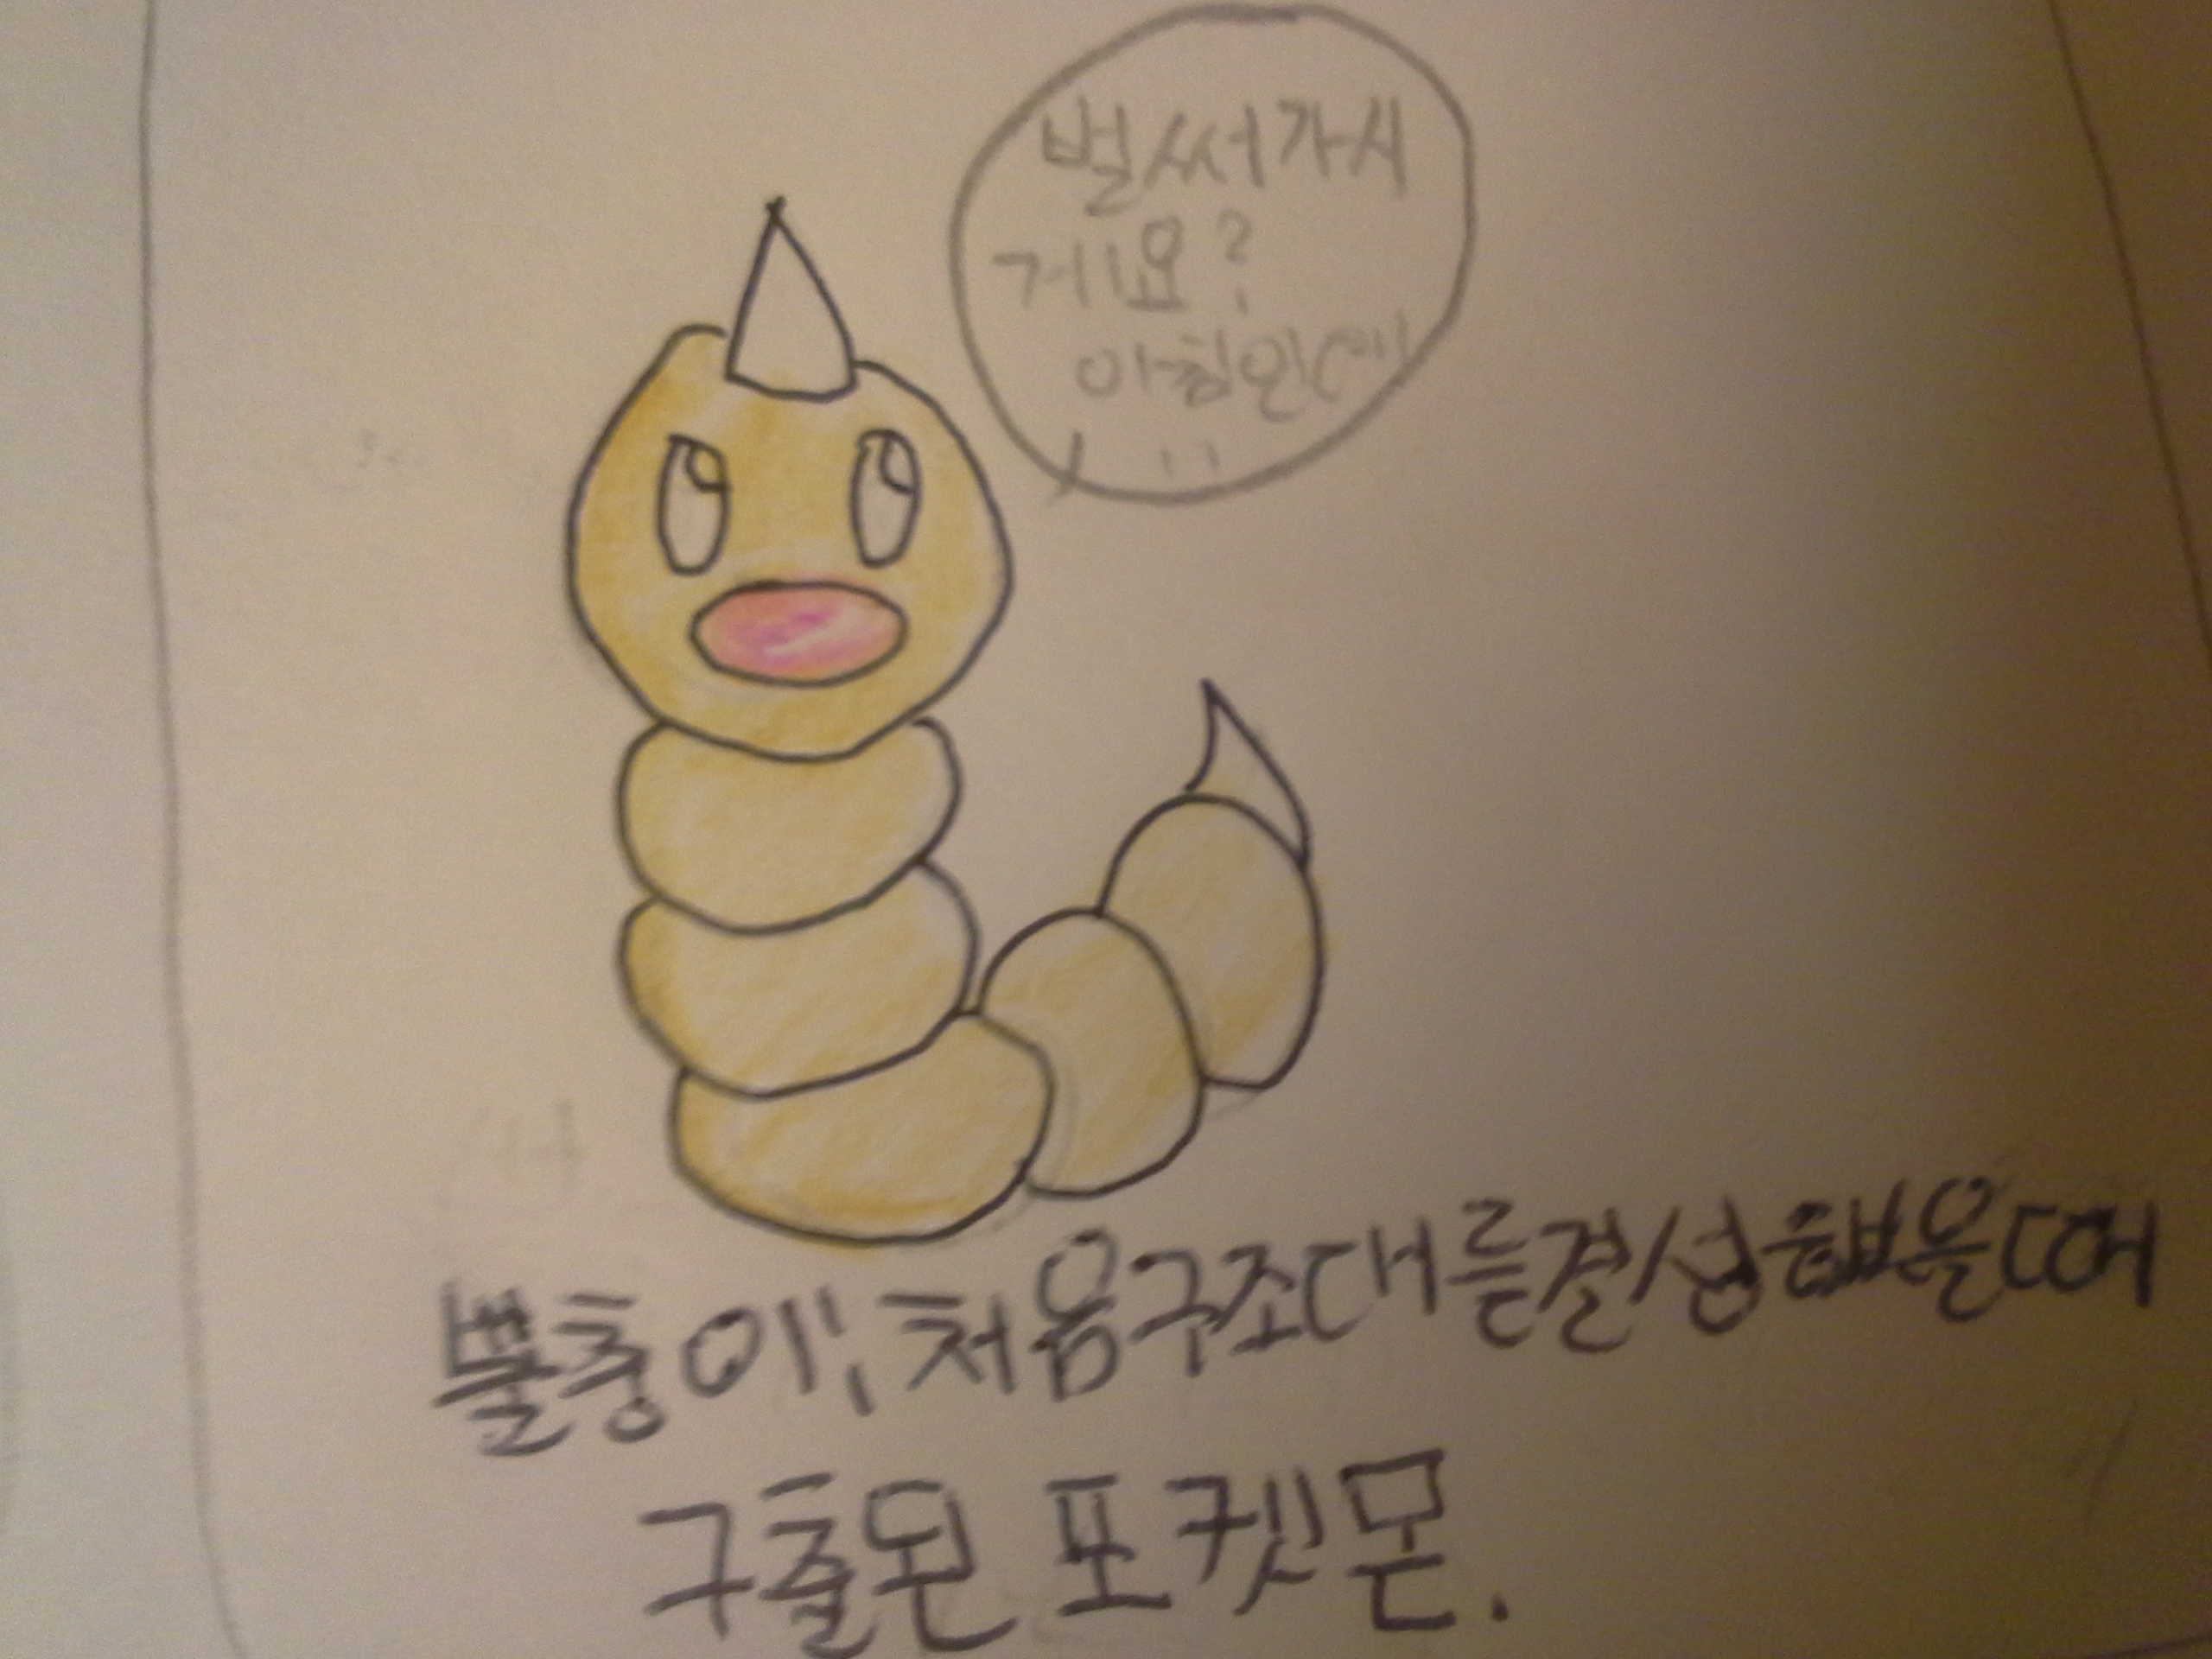 벌써가시
게요?
아침인데
뿔충이, 처음구조대를결성했을때
구출된 포켓몬.